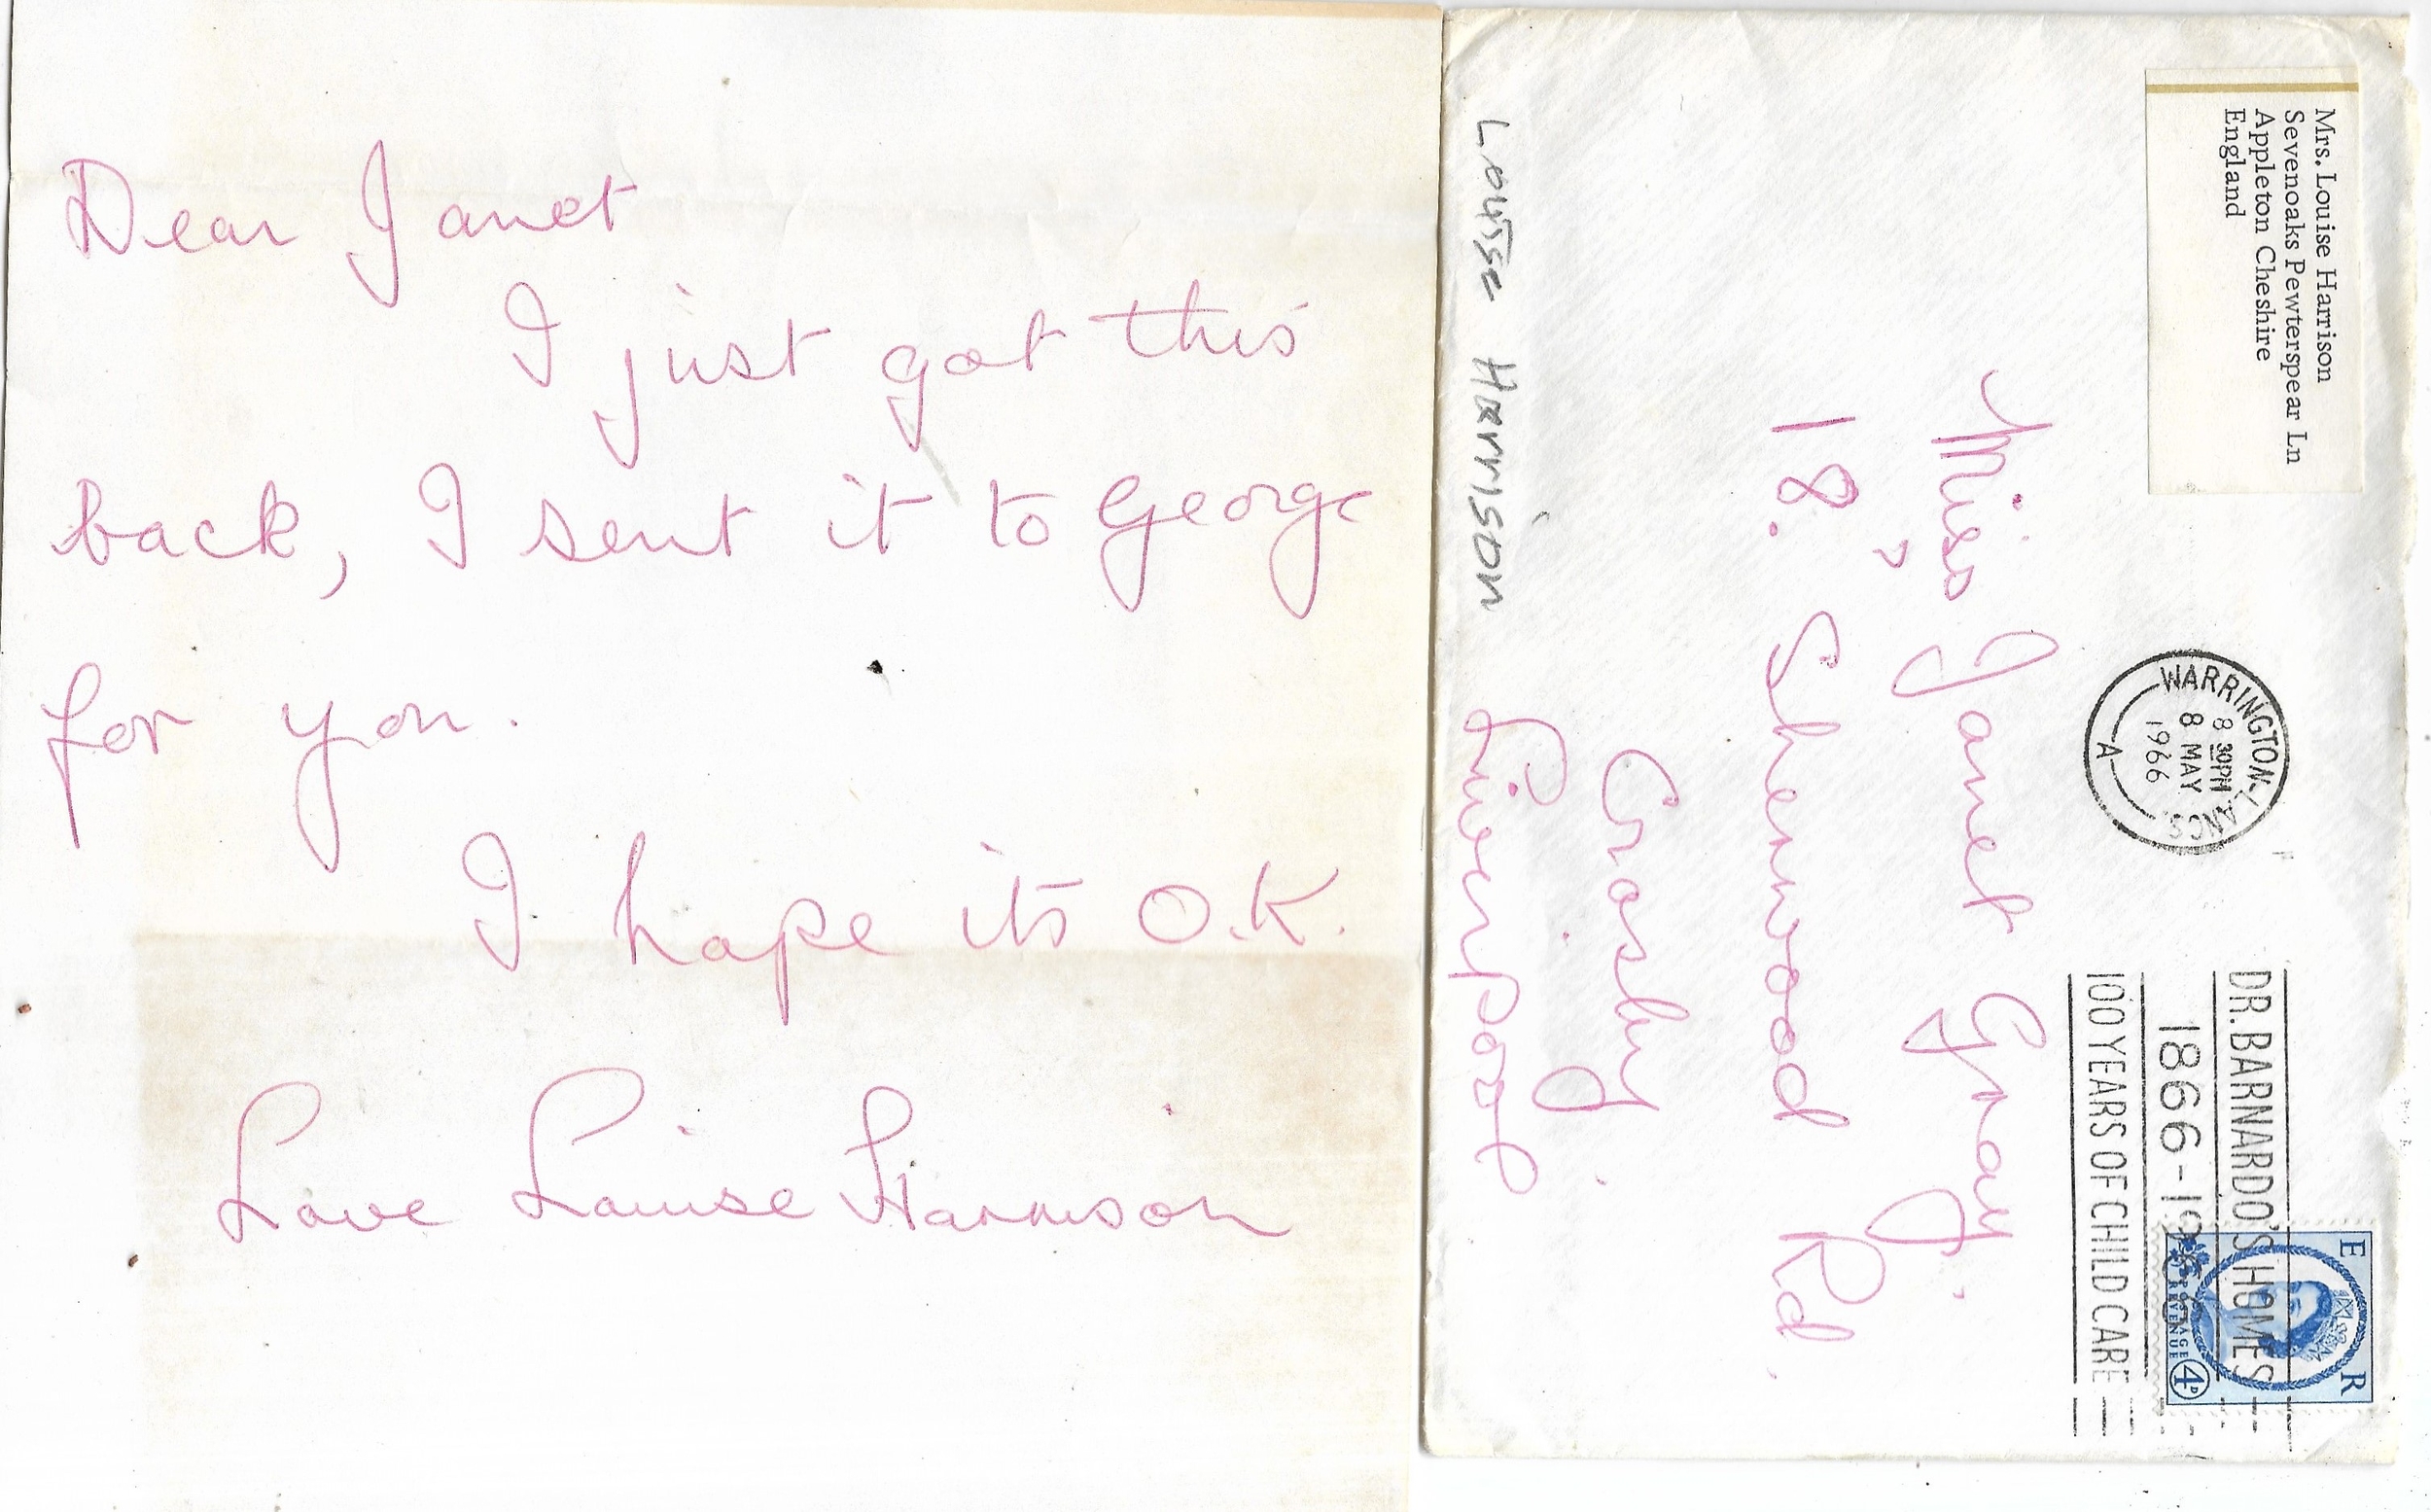 Dear Janet
I just got this
back, I sent it to George
for you.
I hope its O.K.
Love Louise Harrison
Mrs. Louise Harrison
Sevenoaks Pewterspear Ln
Appleton Cheshire
England
WARRINGTON, LANCS.
8 30PM
8 MAY
1966
A
DR. BARNARDO'S HOMES
1866-1966
100 YEARS OF CHILD CARE
E R
POSTAGE
REVENUE
4D
Miss Janet Gray.
18, Sherwood Rd.
Crosby.
Liverpool
Louise Harrison